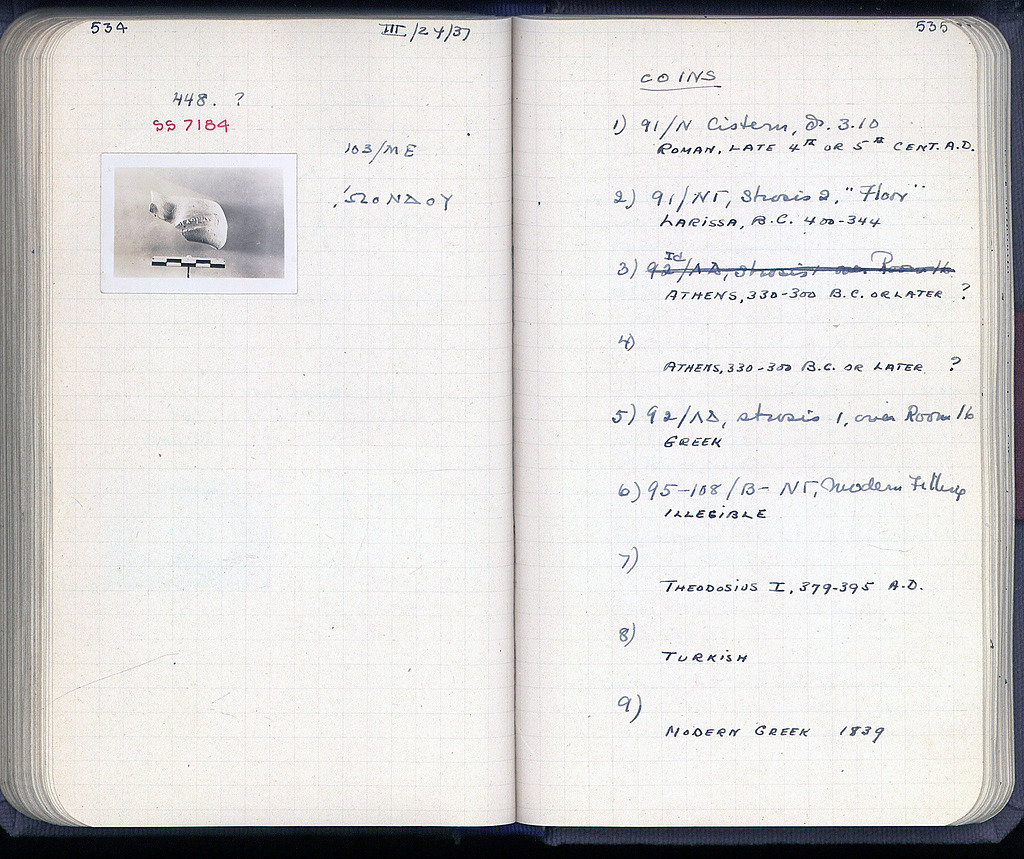 534
III/24/37
448. ?
SS 7184
103/ΜΕ
ΩΟΝΔΟΥ
535
COINS
1) 91/Ν Cistern, 3.10
ROMAN, LATE 4TH OR 5TH CENT. A.D.
2) 91/ΝΓ, Strosis 2, "Floor"
LARISSA, B.C. 400-344
Id.
3) 92/ΛΔ, strosis 1 over Room 16
ATHENS, 330-300 B.C. OR LATER ?
4)
ATHENS, 330-300 B.C. OR LATER ?
5) 92/ΛΔ, strosis 1, over Room 16
GREEK
6) 95-108/Β-ΝΓ, Modern Filling
ILLEGIBLE
7)
THEODOSIUS I, 379-395 A.D.
8)
TURKISH
9)
MODERN GREEK 1839